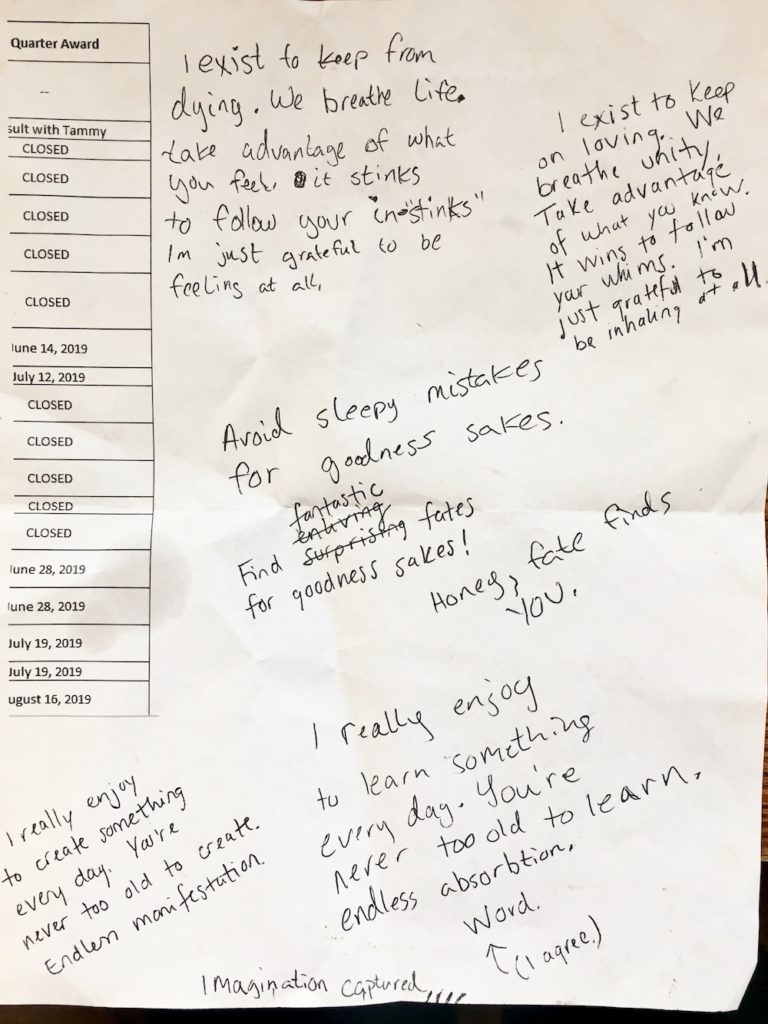 Quarter Award
--
sult with Tammy
CLOSED
CLOSED
CLOSED
CLOSED
CLOSED
June 14, 2019
July 12, 2019
CLOSED
CLOSED
CLOSED
CLOSED
CLOSED
June 28, 2019
June 28, 2019
July 19, 2019
July 19, 2019
ugust 16, 2019
I exist to keep from
dying. We breathe life.
take advantage of what
you feel. it stinks
to follow your in"stinks"
Im just grateful to be
feeling at all,
I exist to keep
on loving. We
breathe unity.
Take advantage
of what you know.
It wins to follow
your whims. I'm
just grateful to
be inhaling at all.
Avoid sleepy mistakes
for goodness sakes.
fantastic
Find surprising fates
for goodness sakes!
Honey, fate finds
YOU.
I really enjoy
to learn something
every day. You're
never too old to learn.
endless absorbtion.
Word.
(I agree.)
I really enjoy
to create something
every day. You're
never too old to create.
Endless manifestation.
Imagination captured,,,,